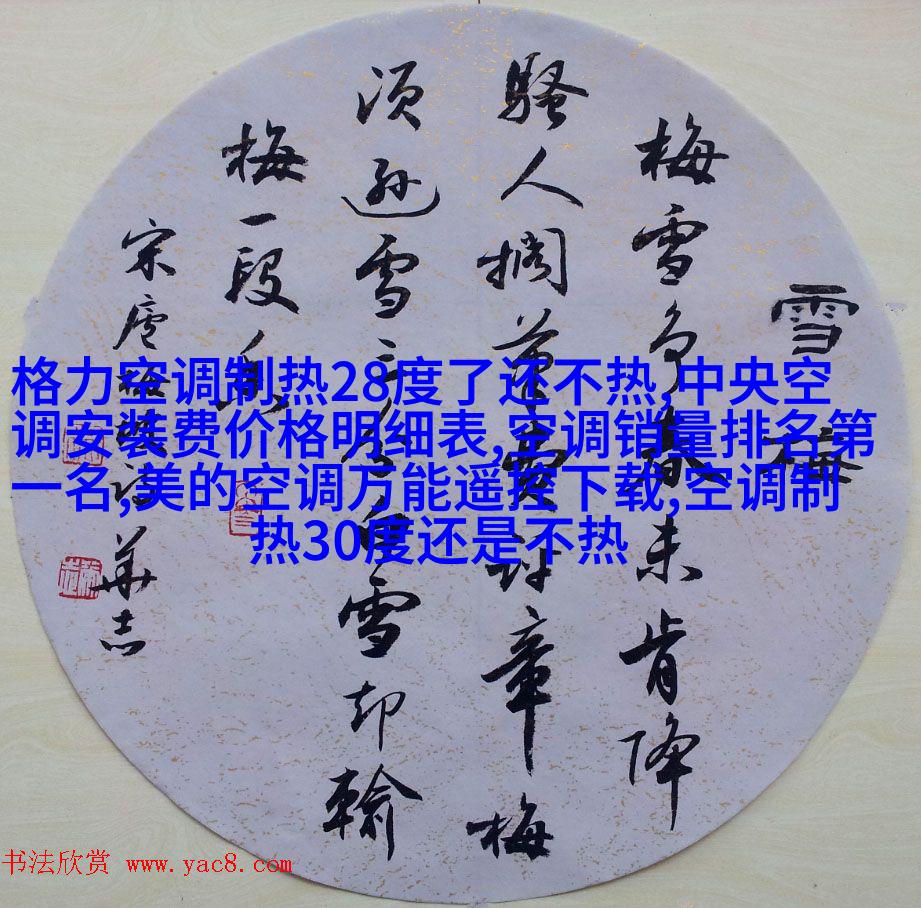 雪梅
梅雪争春未肯降
骚人搁笔费评章梅
须逊雪三分白雪却输
梅一段香
宋卢梅坡诗 華志
格力空调制热28度了还不热,中央空
调安装费价格明细表,空调销量排名第
一名,美的空调万能遥控下载,空调制
热30度还是不热
书法欣赏 www.yac8.com